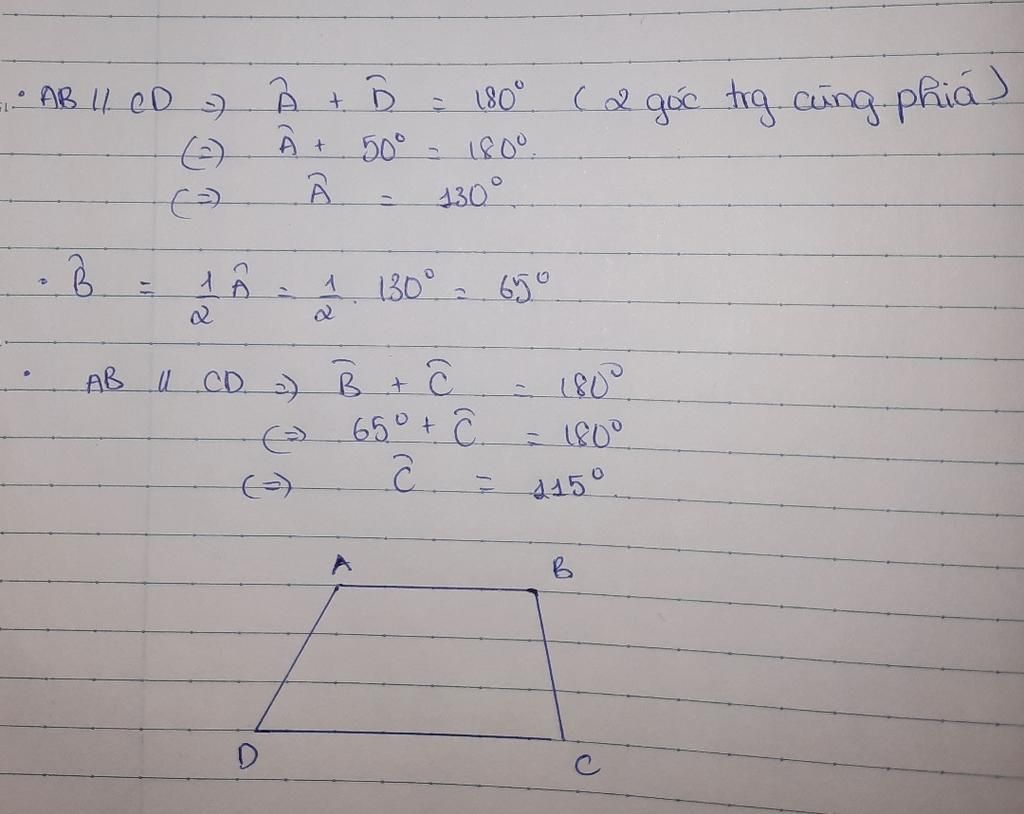 · AB // CD => Â + D̂ = 180° (2 góc trg cùng phía)
(=) Â + 50° = 180°.
(=) Â = 130°.
· B̂ = 1/2 Â = 1/2 . 130° = 65°
· AB // CD => B̂ + Ĉ = 180°
(=) 65° + Ĉ = 180°
(=) Ĉ = 115°.
A B
D C